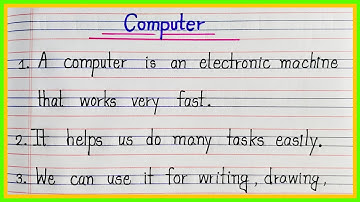 Computer
1. A computer is an electronic machine
that works very fast.
2. It helps us do many tasks easily.
3. We can use it for writing, drawing,